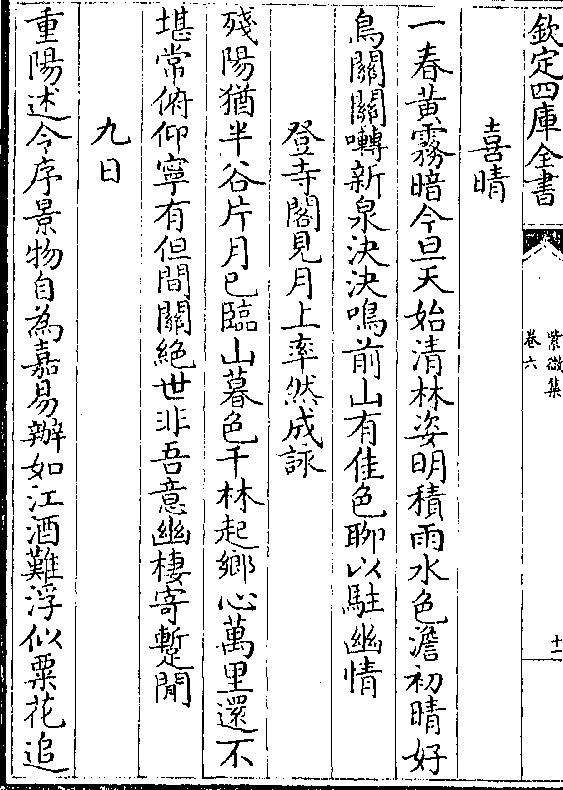 欽定四庫全書
紫微集
卷六
十二
喜晴
一春黃霧暗今旦天始清林姿明積雨水色澹初晴好
鳥關關囀新泉決決鳴前山有佳色聊以駐幽情
登寺閣見月上率然成詠
殘陽猶半谷片月已臨山暮色千林起鄉心萬里還不
堪常俯仰寧有但間關絶世非吾意幽棲寄蹔閒
九日
重陽述令序景物自為嘉易辦如江酒難浮似粟花追